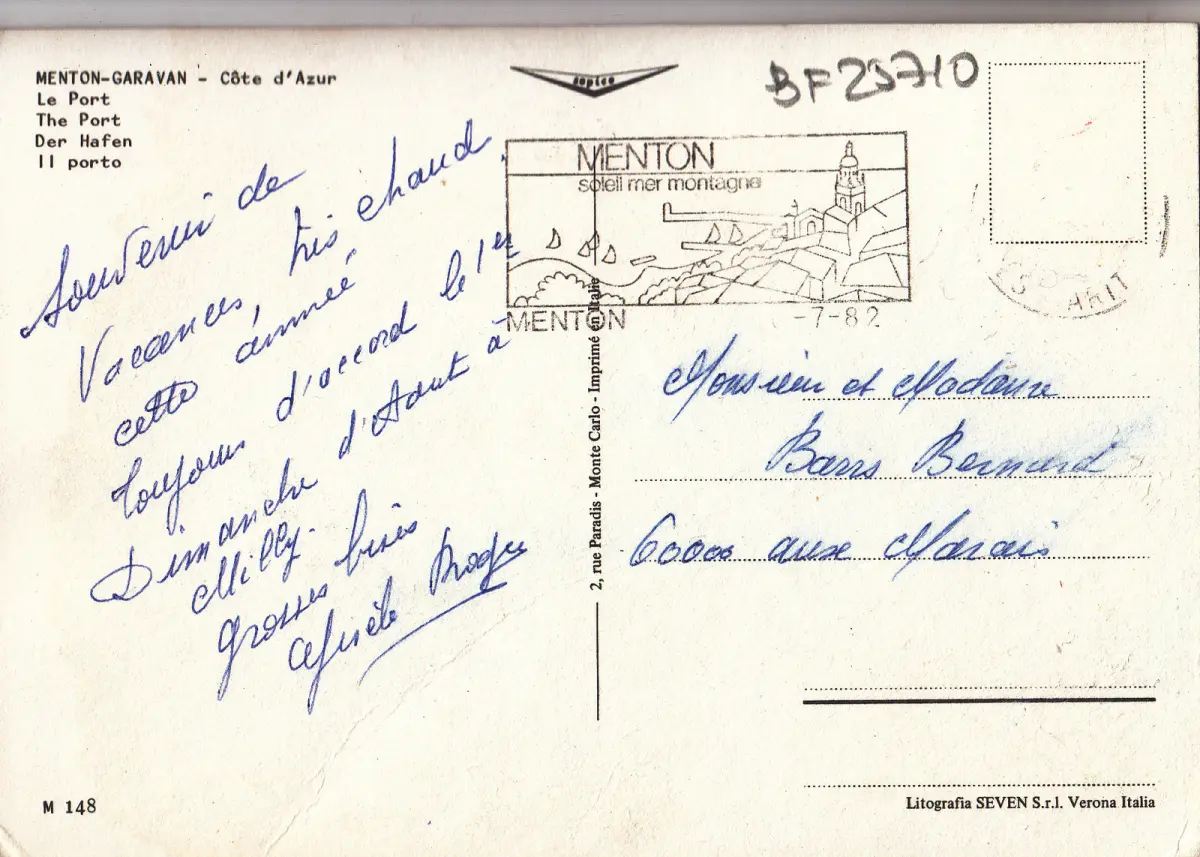 MENTON-GARAVAN - Côte d'Azur
Le Port
The Port
Der Hafen
Il porto
sopico
BF23710
MENTON
soleil mer montagne
MENTON
-7-82
Souvenir de
Vacances, très chaud
cette année
Toujours d'accord le 1er
Dimanche d'Aout à
Milly.
grosses bises
Gisèle Roger
2, rue Paradis - Monte Carlo - Imprimé en Italie
Monsieur et Madame
Barrs Bernard
60000 aux Marais
M 148
Litografia SEVEN S.r.l. Verona Italia